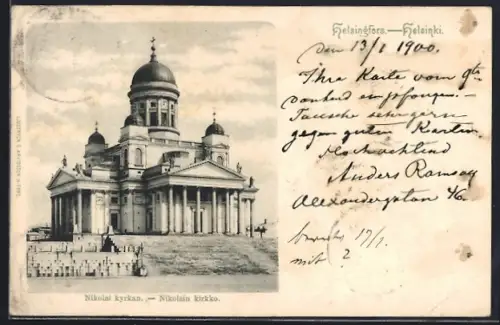 Helsingfors.—Helsinki.
den 13/1 1900.
Ihre Karte vom 9ten
dankend empfangen.-
Tausche sehr gern
gegen guten Karten.
Hochachtend
Anders Ramsay
Alexandersgatan 46.
17/1
mit ?
Nikolai kyrkan. — Nikolain kirkko.